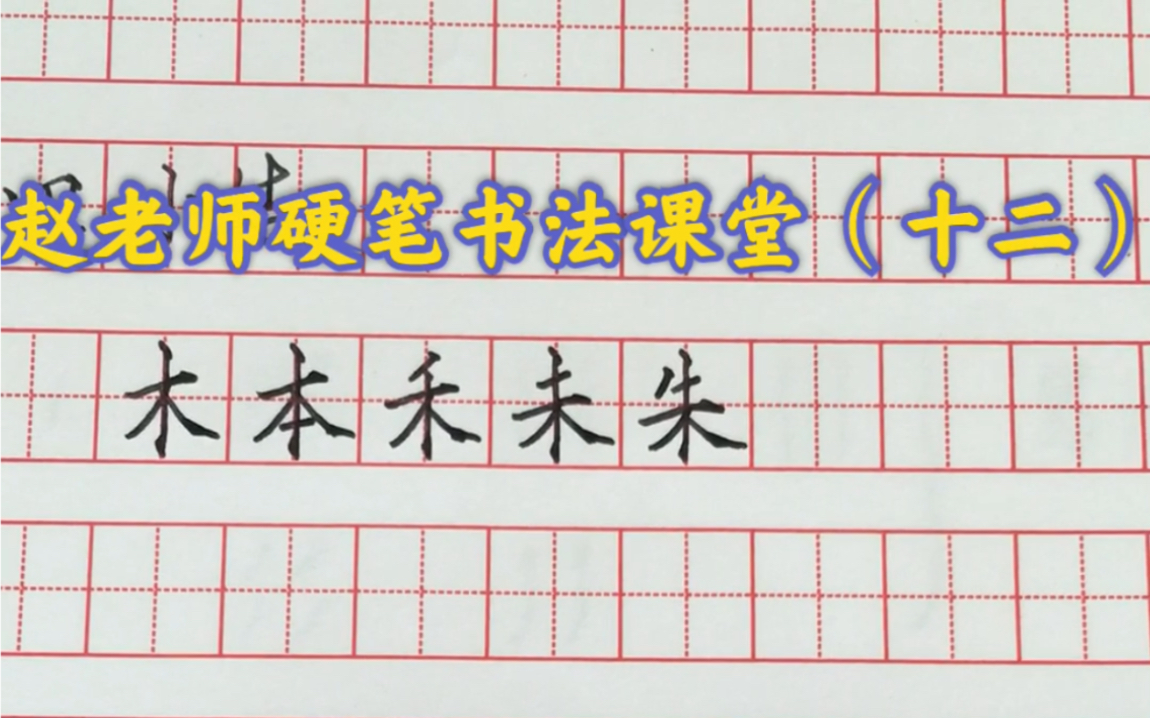 赵老师硬笔书法课堂（十二）
木本禾未朱